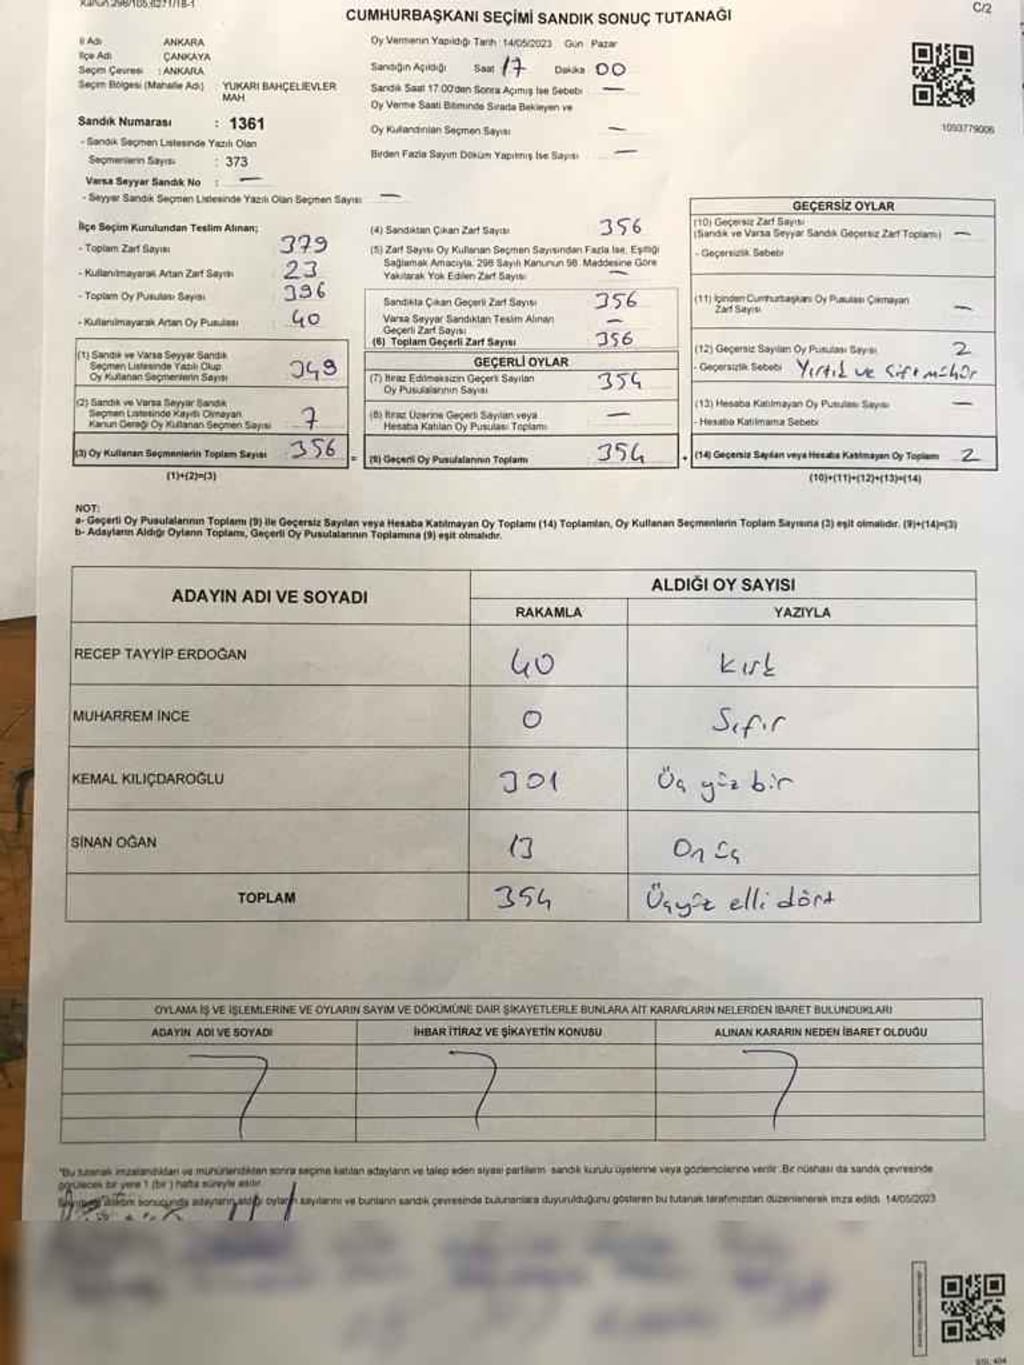 Kanun:298/105,6271/18-1
C/2
CUMHURBAŞKANI SEÇİMİ SANDIK SONUÇ TUTANAĞI
İl Adı ANKARA
İlçe Adı ÇANKAYA
Seçim Çevresi : ANKARA
Seçim Bölgesi (Mahalle Adı) : YUKARI BAHÇELİEVLER MAH
Sandık Numarası : 1361
- Sandık Seçmen Listesinde Yazılı Olan
Seçmenlerin Sayısı : 373
Varsa Seyyar Sandık No : —
- Seyyar Sandık Seçmen Listesinde Yazılı Olan Seçmen Sayısı —
Oy Vermenin Yapıldığı Tarih : 14/05/2023 Gün Pazar
Sandığın Açıldığı Saat 17 Dakika 00
Sandık Saat 17.00'den Sonra Açımış İse Sebebi —
Oy Verme Saati Bitiminde Sırada Bekleyen ve
Oy Kullandırılan Seçmen Sayısı —
Birden Fazla Sayım Döküm Yapılmış İse Sayısı —
1093779006
İlçe Seçim Kurulundan Teslim Alınan;
- Toplam Zarf Sayısı 379
- Kullanılmayarak Artan Zarf Sayısı 23
- Toplam Oy Pusulası Sayısı 396
- Kullanılmayarak Artan Oy Pusulası 40
(1) Sandık ve Varsa Seyyar Sandık
Seçmen Listesinde Yazılı Olup
Oy Kullanan Seçmenlerin Sayısı 349
(2) Sandık ve Varsa Seyyar Sandık
Seçmen Listesinde Kayıtlı Olmayan
Kanun Gereği Oy Kullanan Seçmen Sayısı 7
(3) Oy Kullanan Seçmenlerin Toplam Sayısı 356 =
(1)+(2)=(3)
(4) Sandıktan Çıkan Zarf Sayısı 356
(5) Zarf Sayısı Oy Kullanan Seçmen Sayısından Fazla İse, Eşitliği
Sağlamak Amacıyla, 298 Sayılı Kanunun 98. Maddesine Göre
Yakılarak Yok Edilen Zarf Sayısı —
Sandıkta Çıkan Geçerli Zarf Sayısı 356
Varsa Seyyar Sandıktan Teslim Alınan
Geçerli Zarf Sayısı —
(6) Toplam Geçerli Zarf Sayısı 356
GEÇERLİ OYLAR
(7) İtiraz Edilmeksizin Geçerli Sayılan
Oy Pusulalarının Sayısı 354
(8) İtiraz Üzerine Geçerli Sayılan veya
Hesaba Katılan Oy Pusulası Toplamı —
(9) Geçerli Oy Pusulalarının Toplamı 354 +
GEÇERSİZ OYLAR
(10) Geçersiz Zarf Sayısı
(Sandık ve Varsa Seyyar Sandık Geçersiz Zarf Toplamı) —
- Geçersizlik Sebebi
(11) İçinden Cumhurbaşkanı Oy Pusulası Çıkmayan
Zarf Sayısı —
(12) Geçersiz Sayılan Oy Pusulası Sayısı 2
- Geçersizlik Sebebi Yırtık ve Çift mühür
(13) Hesaba Katılmayan Oy Pusulası Sayısı —
- Hesaba Katılmama Sebebi
(14) Geçersiz Sayılan veya Hesaba Katılmayan Oy Toplamı 2
(10)+(11)+(12)+(13)=(14)
NOT:
a- Geçerli Oy Pusulalarının Toplamı (9) ile Geçersiz Sayılan veya Hesaba Katılmayan Oy Toplamı (14) Toplamları, Oy Kullanan Seçmenlerin Toplam Sayısına (3) eşit olmalıdır. (9)+(14)=(3)
b- Adayların Aldığı Oyların Toplamı, Geçerli Oy Pusulalarının Toplamına (9) eşit olmalıdır.
ADAYIN ADI VE SOYADI ALDIĞI OY SAYISI
RAKAMLA YAZIYLA
RECEP TAYYİP ERDOĞAN 40 Kırk
MUHARREM İNCE 0 Sıfır
KEMAL KILIÇDAROĞLU 301 Üç yüz bir
SİNAN OĞAN 13 On üç
TOPLAM 354 Üçyüz elli dört
OYLAMA İŞ VE İŞLEMLERİNE VE OYLARIN SAYIM VE DÖKÜMÜNE DAİR ŞİKAYETLERLE BUNLARA AİT KARARLARIN NELERDEN İBARET BULUNDUKLARI
ADAYIN ADI VE SOYADI İHBAR İTİRAZ VE ŞİKAYETİN KONUSU ALINAN KARARIN NEDEN İBARET OLDUĞU
*Bu tutanak imzalandıktan ve mühürlendikten sonra seçime katılan adayların ve talep eden siyasi partilerin sandık kurulu üyelerine veya gözlemcilerine verilir. Bir nüshası da sandık çevresinde
görülecek bir yere 1 (bir) hafta süreyle asılır.
döküm sonucunda adayların aldığı oyların sayılarını ve bunların sandık çevresinde bulunanlara duyurulduğunu gösteren bu tutanak tarafımızdan düzenlenerek imza edildi. 14/05/2023